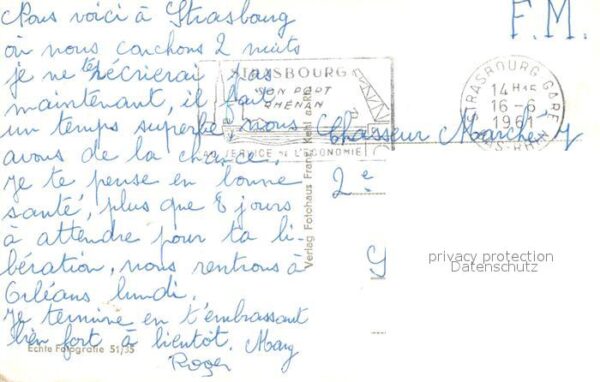 Nous voici à Strasbourg
où nous couchons 2 nuits
je ne t'écrierai pas
maintenant, il fait
un temps superbe nous
avons de la chance.
Je te pense en bonne
santé, plus que 8 jours
à attendre pour ta li-
bération, nous rentrons à
Orléans lundi.
Je termine en t'embrassant
bien fort à bientôt. Mary
Roger
Echte Fotografie 51/35
STRASBOURG
SON PORT
RHENAN
AU SERVICE DE L'ECONOMIE
Verlag Fotohaus Franz Kehl a. Rh.
F.M.
STRASBOURG GARE
14 H
16-6
1961
BS-RHIN
Chasseur Marché y
2e
privacy protection
Datenschutz